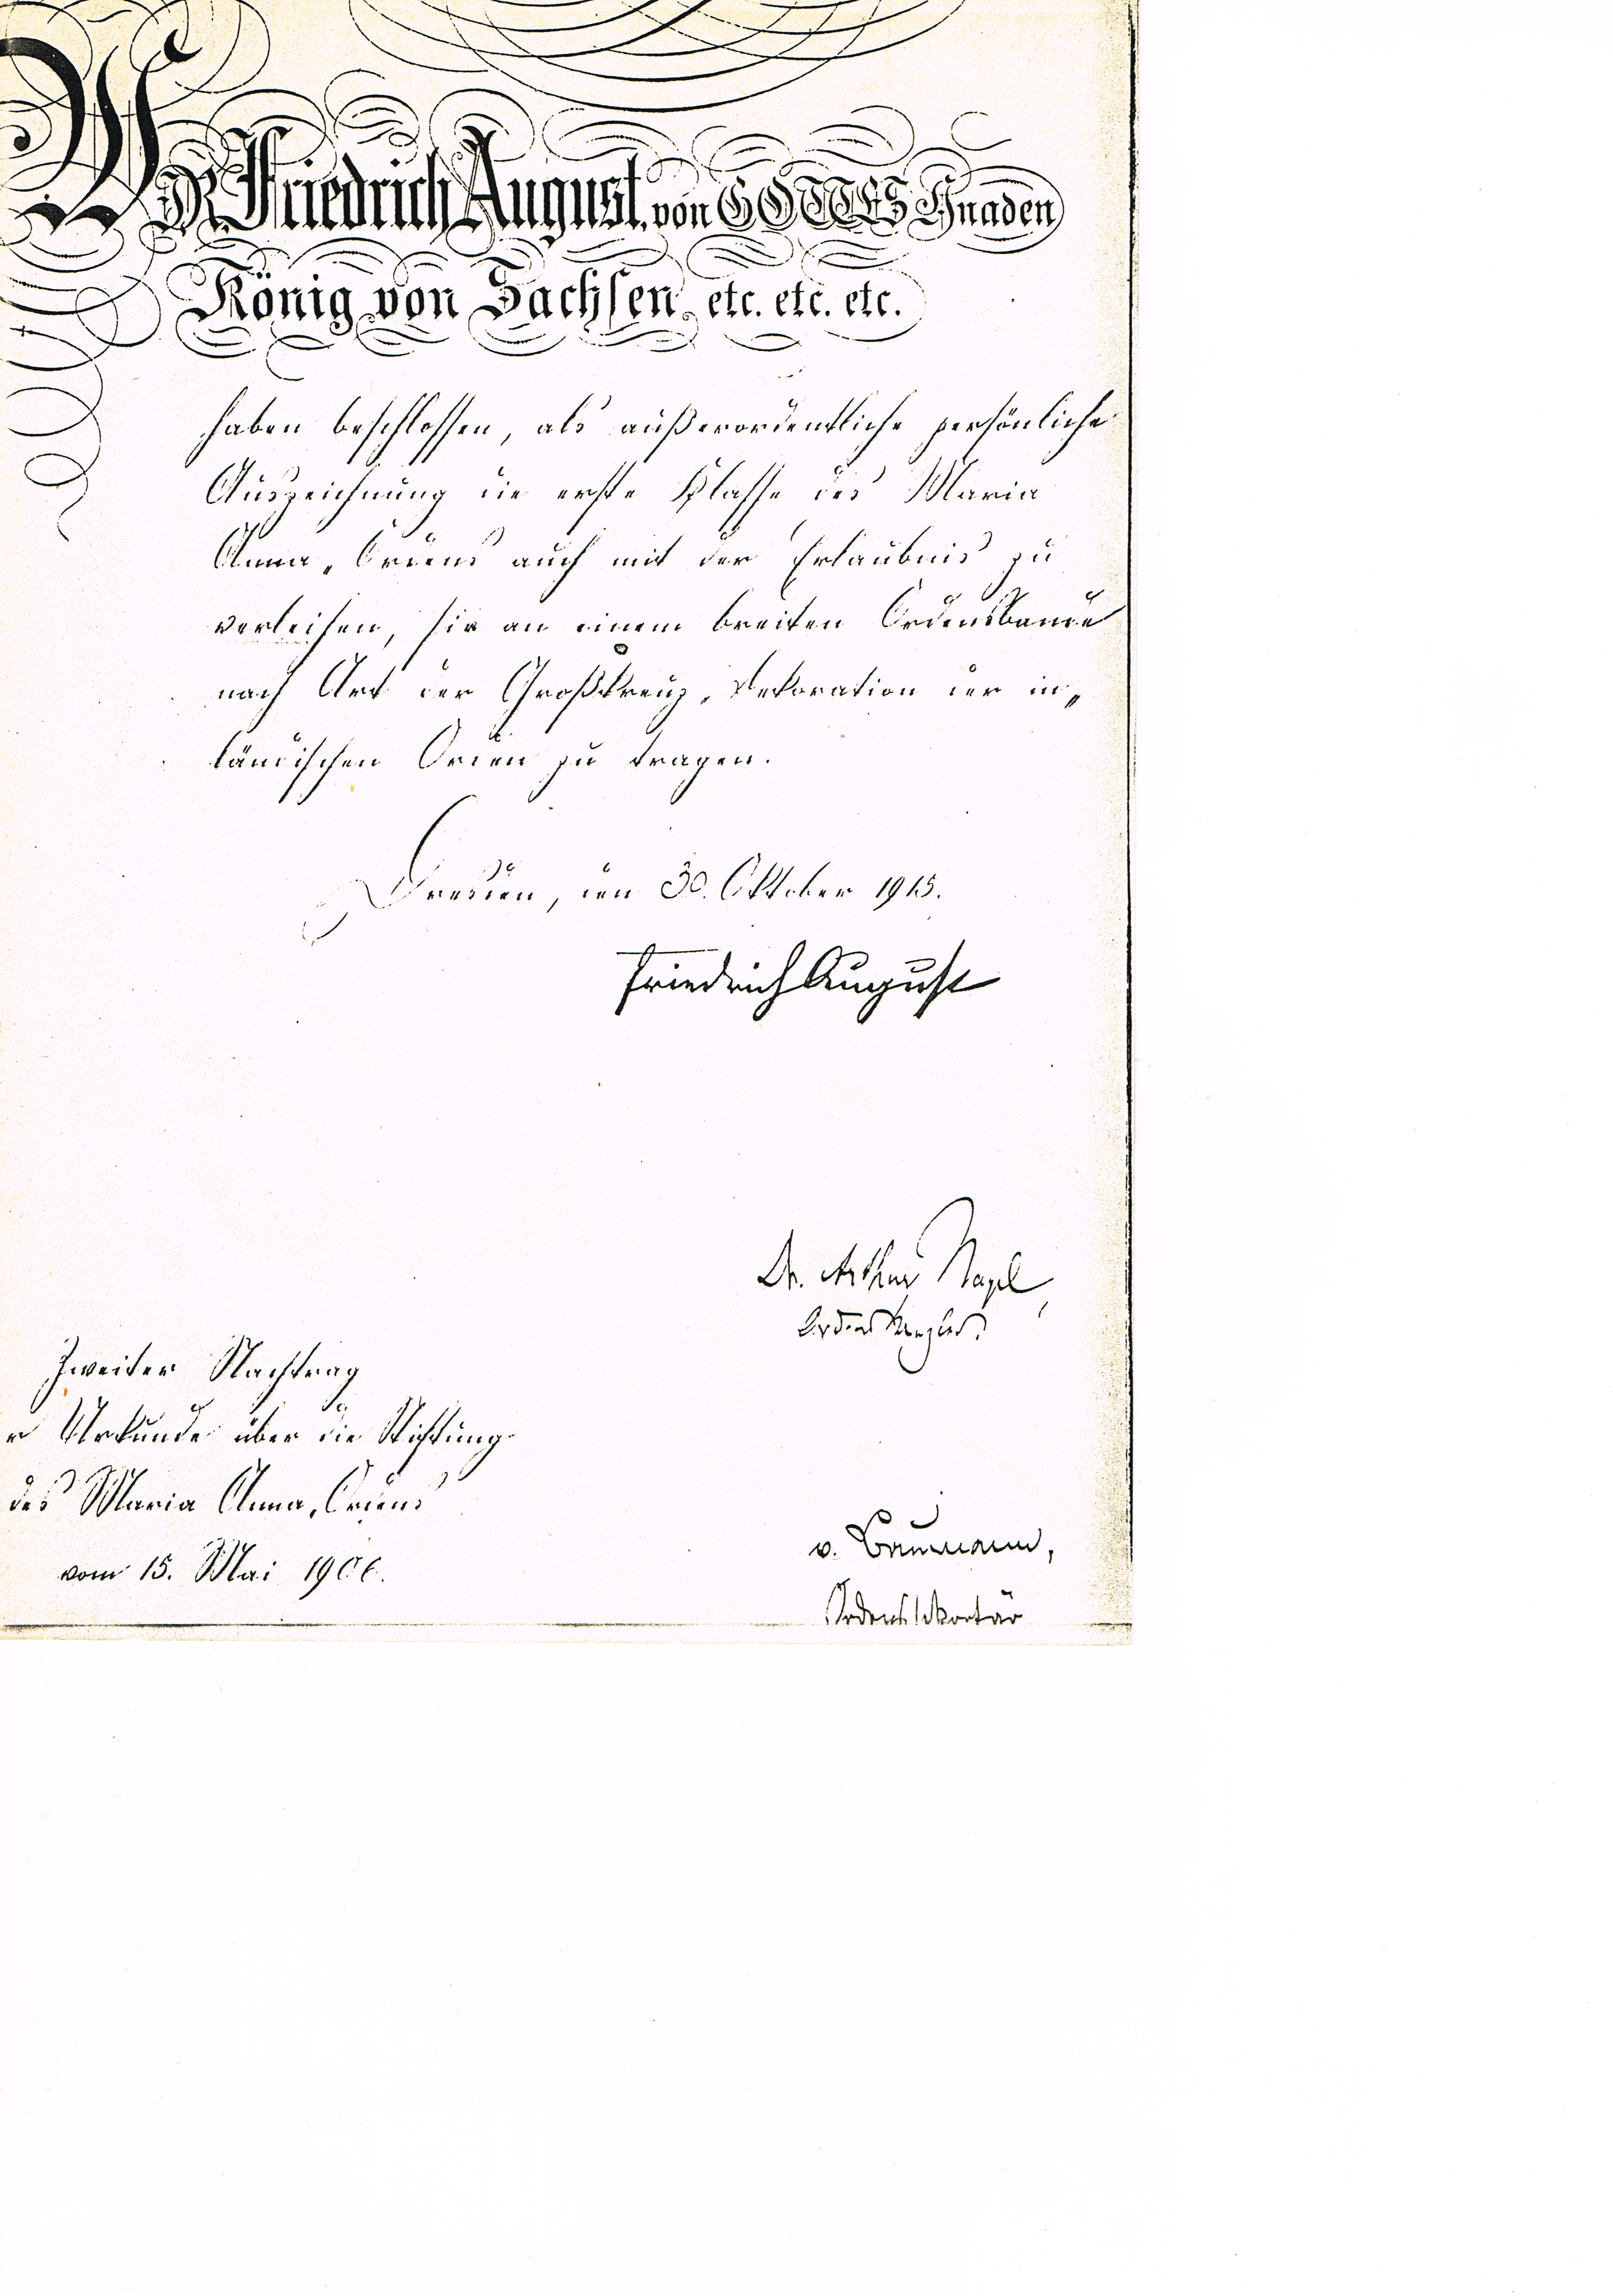 WIR Friedrich August, von GOTTES Gnaden
König von Sachsen, etc. etc. etc.
haben beschlossen, als außerordentliche persönliche
Auszeichnung die erste Klasse des Maria
Anna-Ordens auch mit der Erlaubnis zu
verleihen, sie an einem breiten Ordensbande
nach Art der Großkreuz-Dekoration der in-
ländischen Orden zu tragen.
Dresden, den 30. Oktober 1915.
Friedrich August
Dr. Arthur Nagel,
Ordenskanzler.
Zweiter Nachtrag
r Urkunde über die Stiftung
des Maria Anna-Ordens
vom 15. Mai 1906.
v. Baumann,
Ordenssekretär